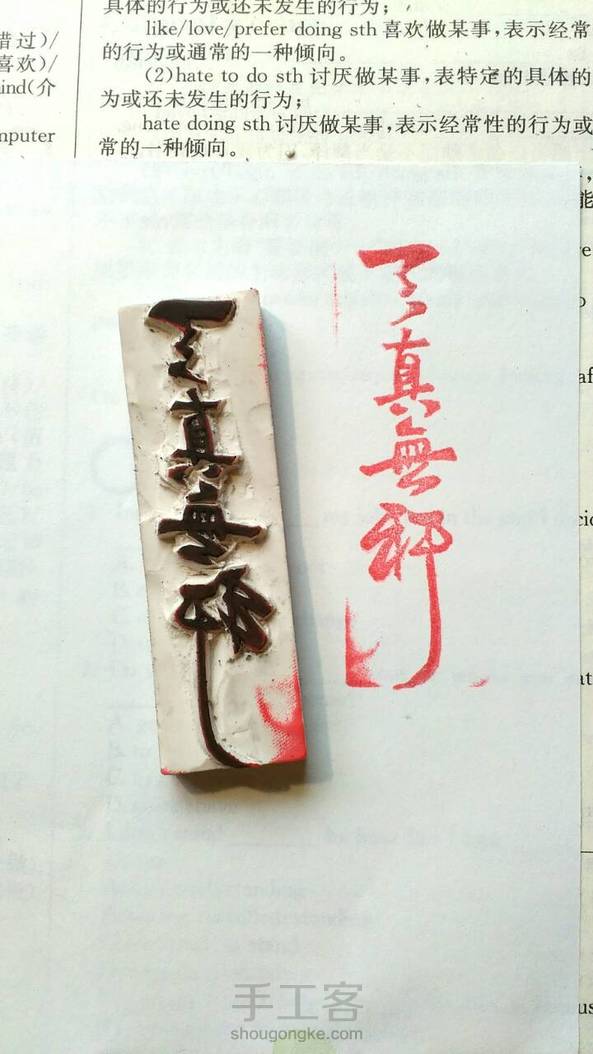 具体的行为或还未发生的行为；
like/love/prefer doing sth 喜欢做某事,表示经常
的行为或通常的一种倾向。
(2)hate to do sth 讨厌做某事,表特定的具体的
为或还未发生的行为；
hate doing sth 讨厌做某事,表示经常性的行为或
常的一种倾向。
错过)/
喜欢)/
ind(介
mputer
能
天真無邪
手工客
shougongke.com